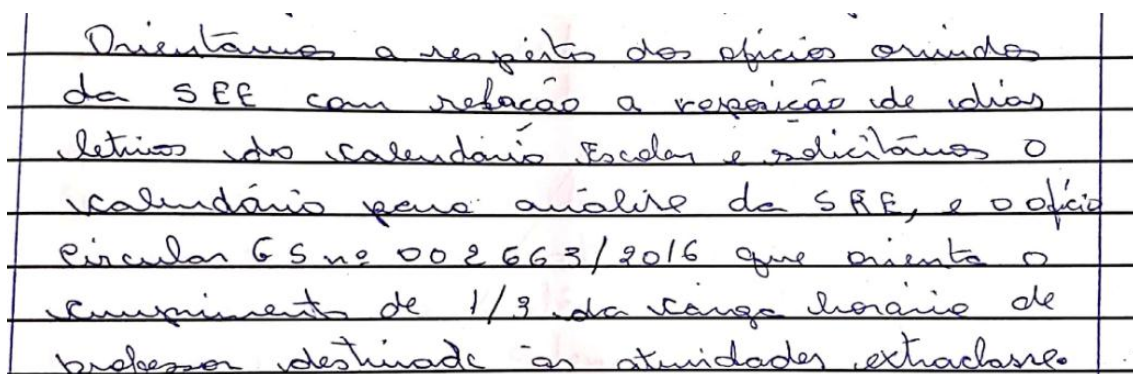 Orientamos a respeito dos ofícios oriundos
da SEE com relação a reposição de dias
letivos do calendário Escolar e solicitamos o
calendário para análise da SRE, e o ofício
Circular GS nº 002663/2016 que orienta o
cumprimento de 1/3 da carga horária de
professor destinada às atividades extraclasse.